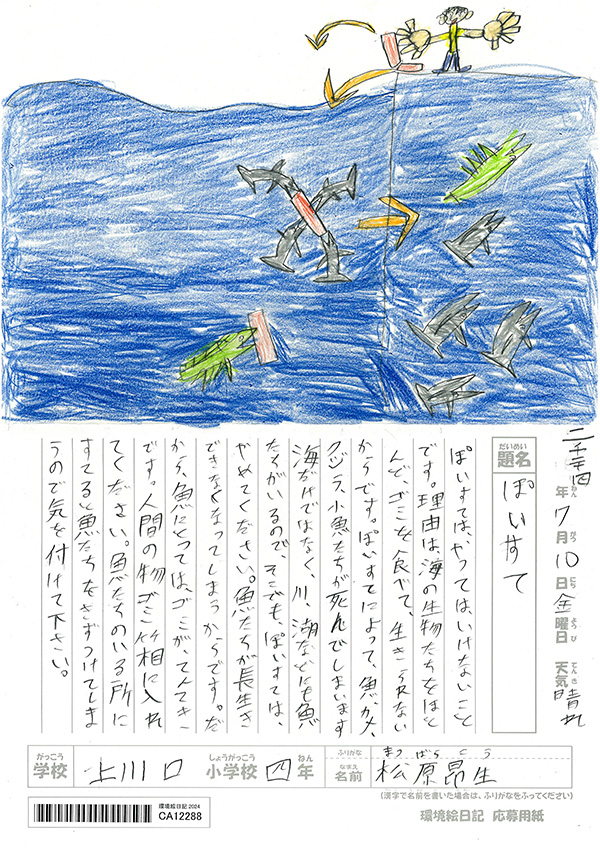 年ねん7月がつ10日にち金曜日ようび 天気てんき晴れ
だいめい
題名 ぽいすて
ぽいすては、やってはいけないこと
です。理由は、海の生物たちをほと
んど、ゴミを食べて、生きられない
からです。ぽいすてによって、魚、カメ、
クジラ、小魚たちが死んでしまいます
海だけではなく、川、湖などにも魚
たちがいるので、そこでも、ぽいすては、
やめてください。魚たちが長生き
できなくなってしまうからです。だ
から、魚にとっては、ゴミが、てんてき
です。人間の物ゴミ箱に入れ
てください。魚たちのいる所に
すてると魚たちをきずつけてしま
うので気を付けて下さい。
がっこう しょうがっこう ねん ふりがな まつばら こう
学校 上川口 小学校 四 年 なまえ 名前 松原昂生
(漢字で名前を書いた場合は、ふりがなをふってください)
環境絵日記 2024
CA12288
環境絵日記 応募用紙